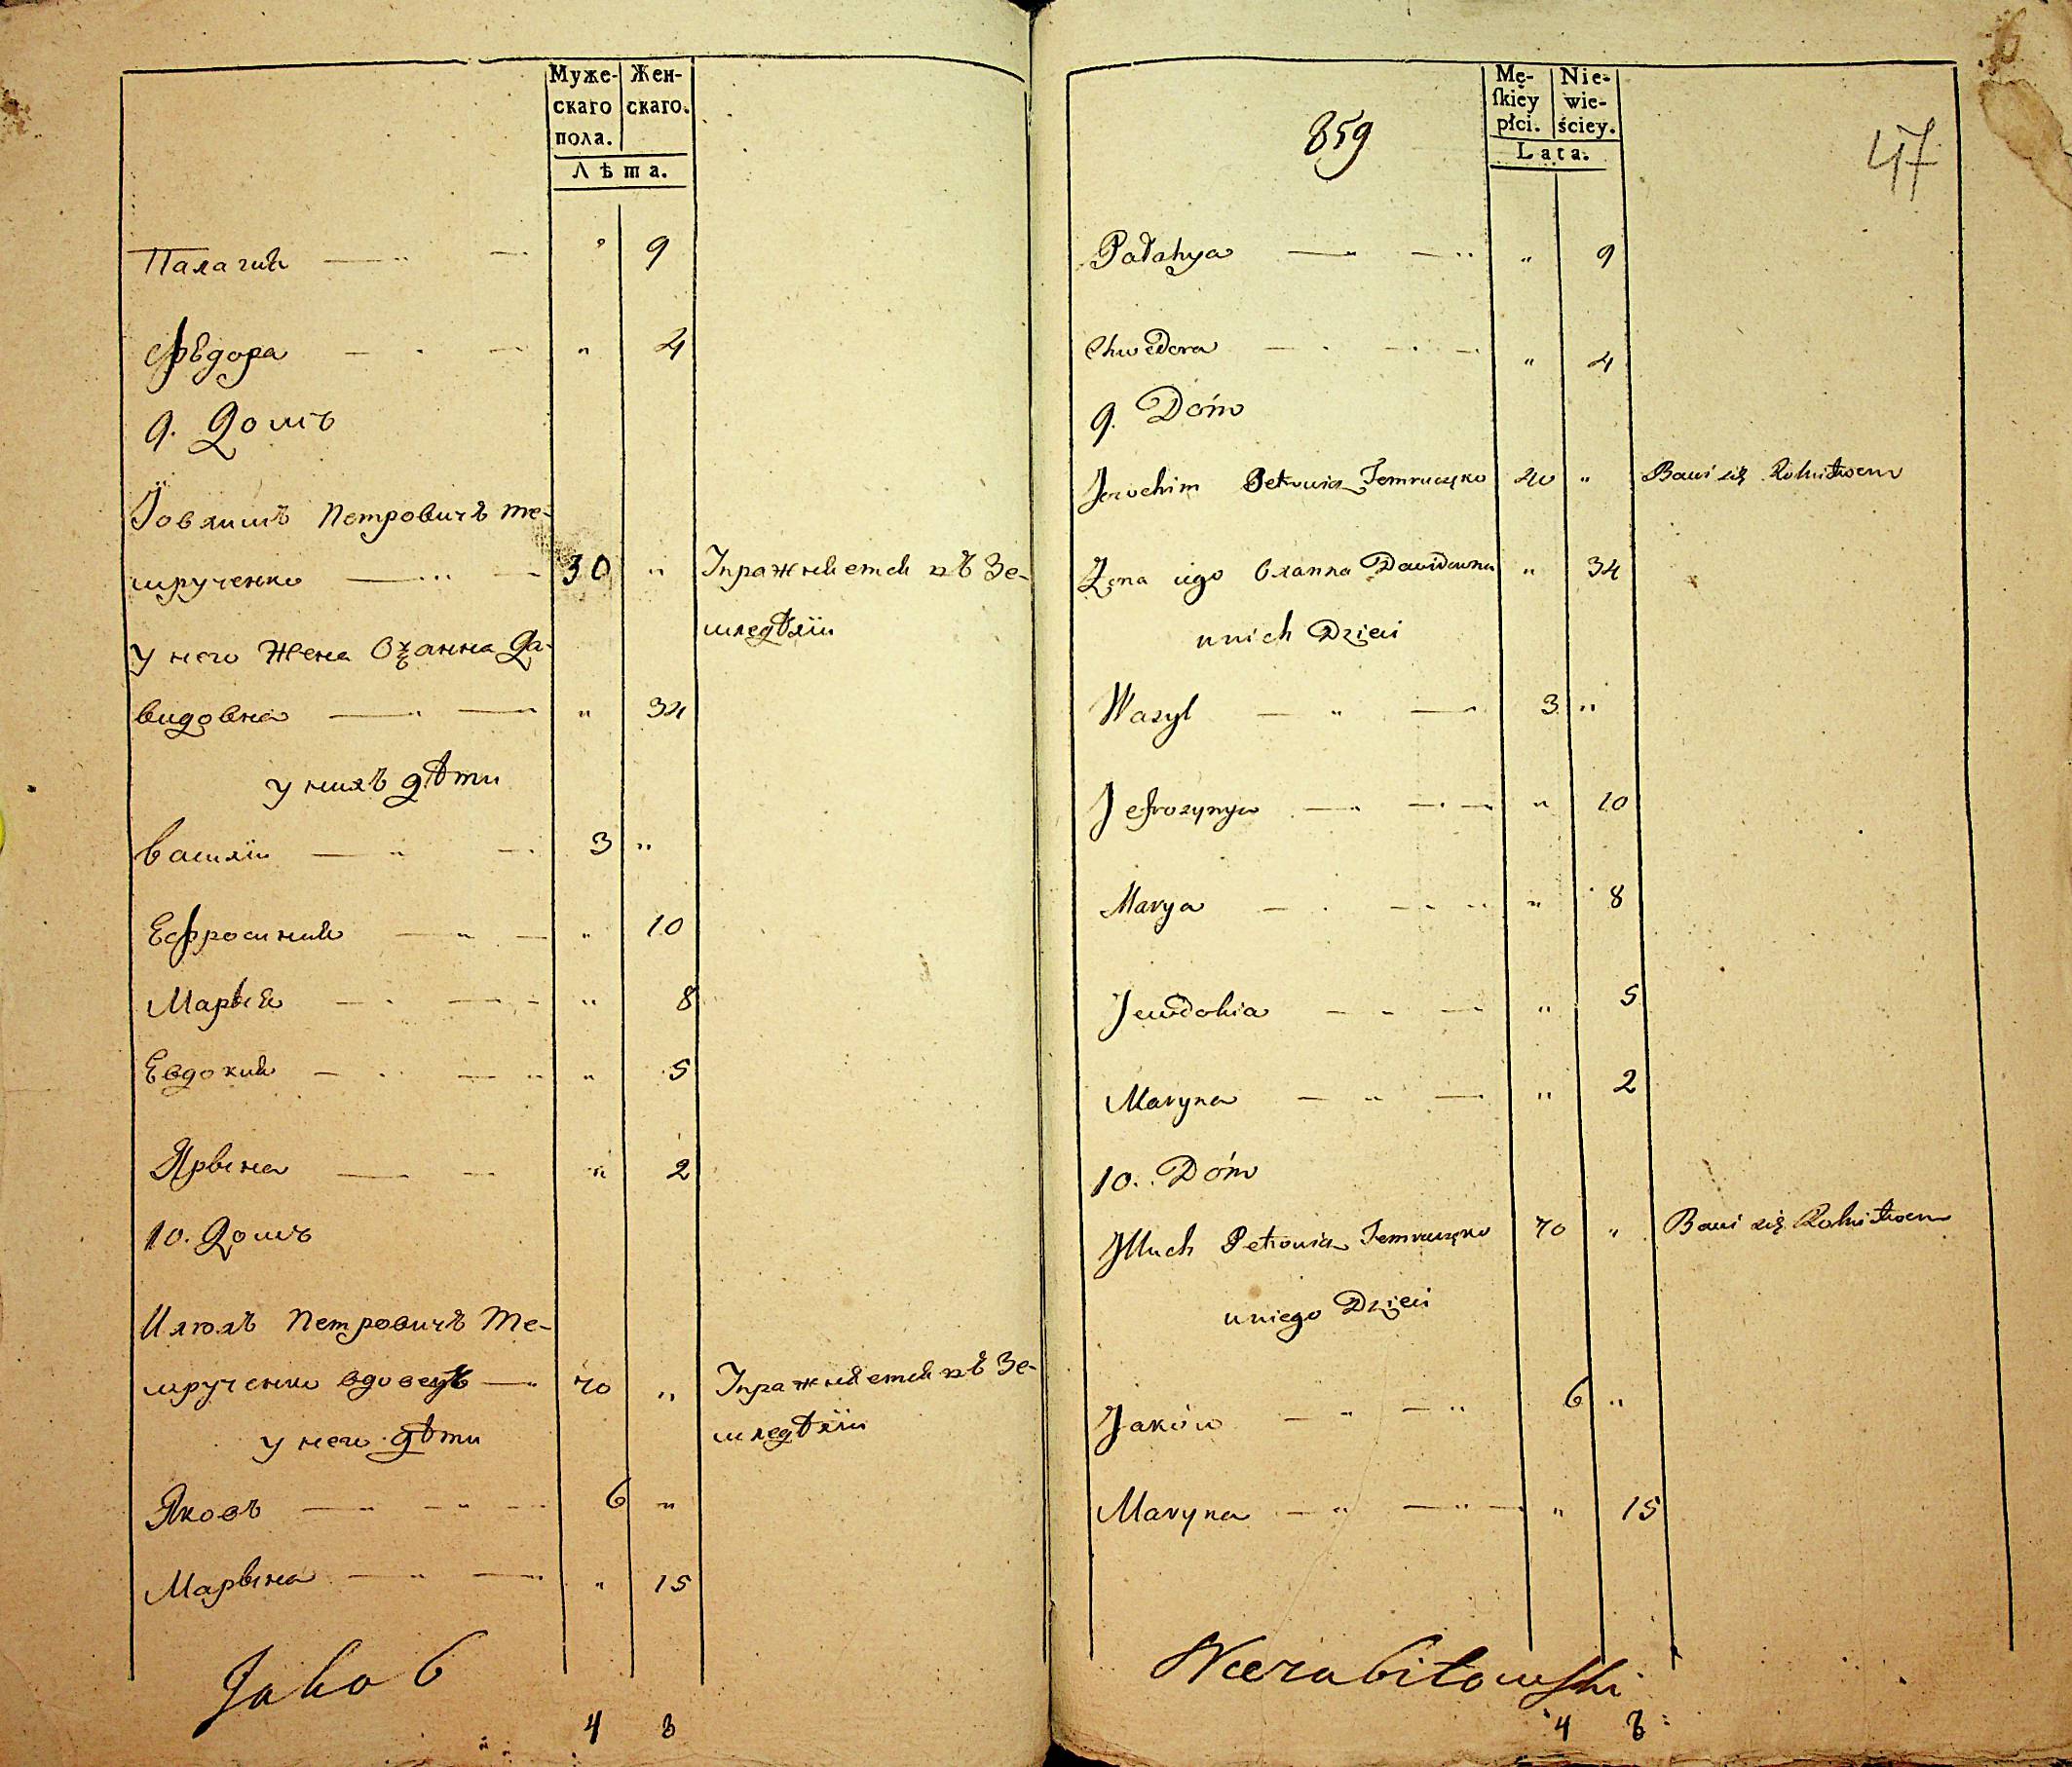 Муже-
скаго
пола.
Жен-
скаго.
Лѣта.
Палагия — " — " 9
Ѳедора — " — " 4
9. Домъ
Іовхимъ Петровичъ Те-
мрученко — " — 30 " Упражняется въ Зе-
мледѣліи
У него Жена Оханна Да-
видовна — " — " 34
у нихъ дѣти
Василіи — " — 3 "
Ефросиния — " — " 10
Марья — " — " 8
Евдокия — " — " 5
Арына — — " 2
10. Домъ
Илюхъ Петровичъ Те-
мрученко вдовецъ — " 70 " Упражняется въ Зе-
мледѣліи
у него дѣти
Яковъ — " — " — 6 "
Марына — " — " 15
Jakob
4 8
859
47
Mę-
ſkiéy
płci.
Nie-
wie-
ściey.
Lata.
Pałahya — " — " " 9
Chwedora — " — " — " 4
9. Dóm
Jewchim Petrowicz Temruczęko 40 " Bawi się Rolnitwem
Zona iego Oxanna Dawidowna " 34
u nich Dzieci
Wasyl — " — 3 "
Jefrozynya — " — " — " 10
Marya — " — " " " 8
Jewdokia — " — " 5
Maryna — " — " 2
10. Dóm
Jlluch Petrowicz Temruczęko 70 " Bawi się Rolnitwem
u niego Dzieci
Jaków — " — " 6 "
Maryna — " — " — " 15
Nierabitowski
4 8